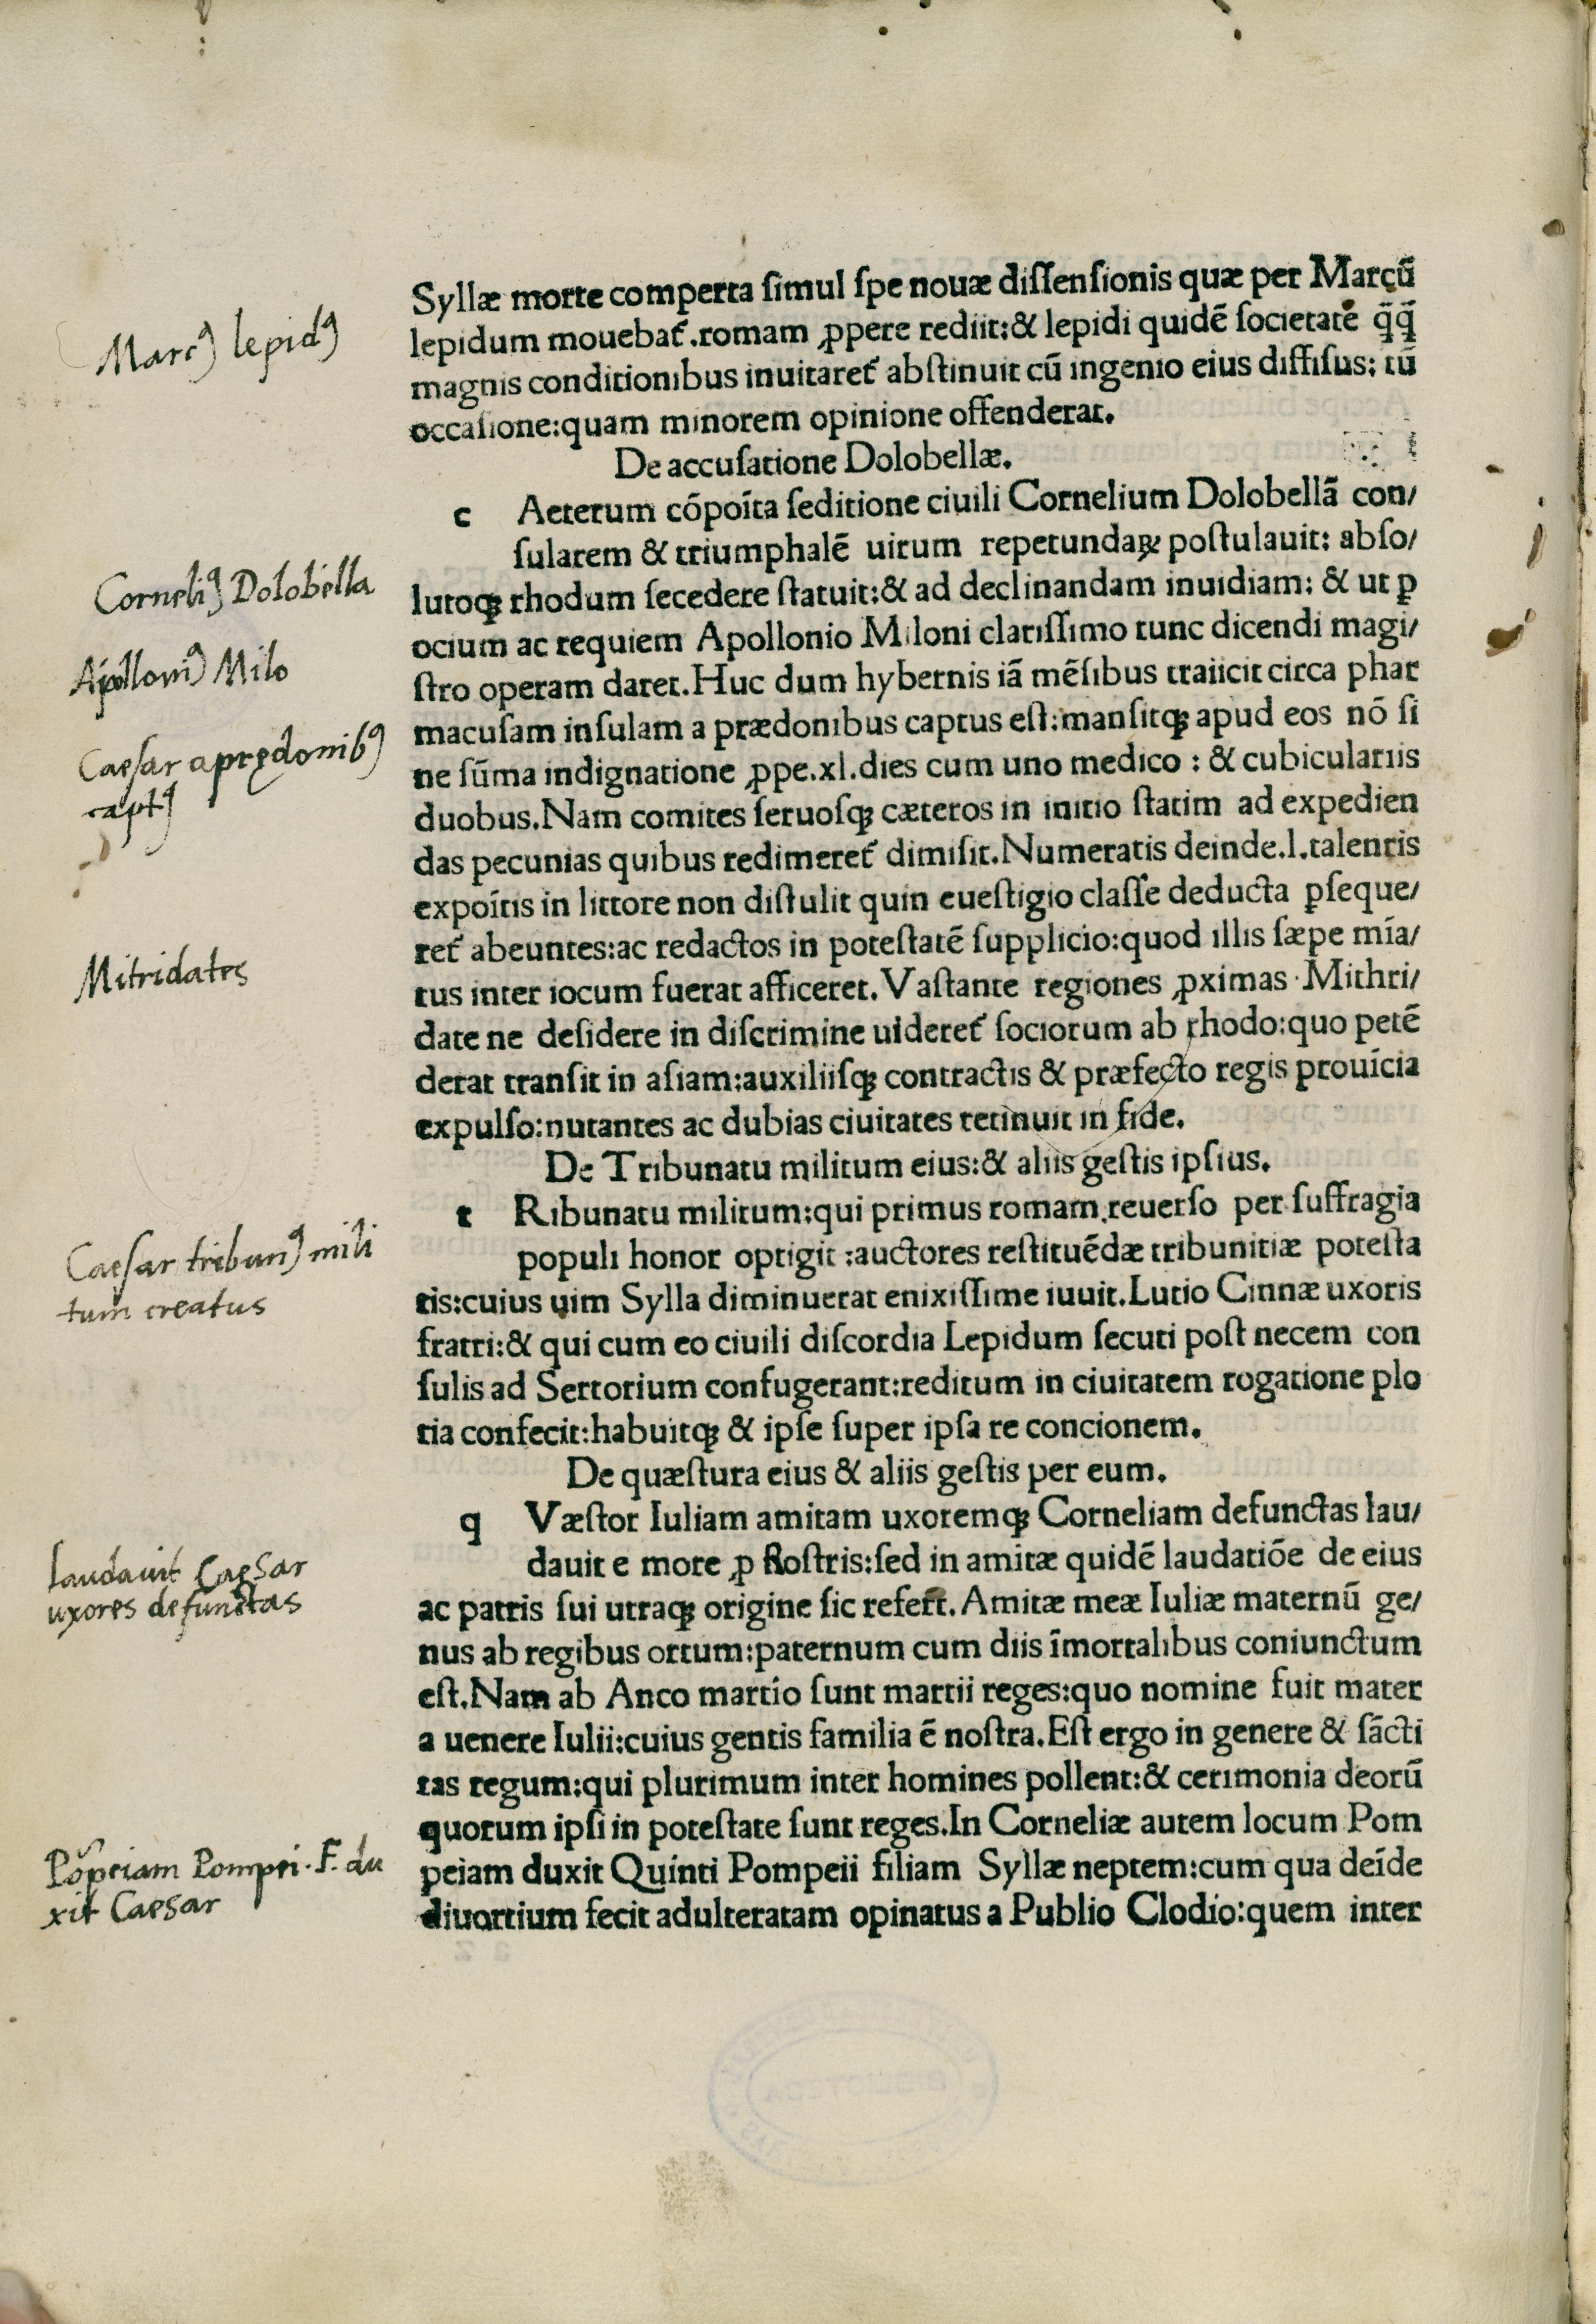 Syllæ morte comperta ſimul ſpe nouæ diſſenſionis quæ per Marcū
lepidum mouebat᷑.romam ꝓpere rediit:& lepidi quidē ſocietatē q̄q̄
magnis conditionibus inuitaret᷑ abſtinuit cū ingenio eius diffiſus: tū
occaſione:quam minorem opinione offenderat.
Marcꝰ lepidꝰ
De accuſatione Dolobellæ.
c Aeterum cōpoīta ſeditione ciuili Cornelium Dolobellā con/
ſularem & triumphalē uirum repetundaꝝ poſtulauit: abſo/
lutoqꝫ rhodum ſecedere ſtatuit:& ad declinandam inuidiam: & ut ꝑ
ocium ac requiem Apollonio Miloni clariſſimo tunc dicendi magi/
ſtro operam daret.Huc dum hybernis iā mēſibus traiicit circa phar
macuſam inſulam a prædonibus captus eſt:manſitqꝫ apud eos nō ſi
ne ſūma indignatione ꝓpe.xl.dies cum uno medico : & cubiculariis
duobus.Nam comites ſeruoſqꝫ cæteros in initio ſtatim ad expedien
das pecunias quibus redimeret᷑ dimiſit.Numeratis deinde.l.talentis
expoītis in littore non diſtulit quin eueſtigio claſſe deducta ꝑſeque/
ret᷑ abeuntes:ac redactos in poteſtatē ſupplicio:quod illis ſæpe mīa/
tus inter iocum fuerat afficeret.Vaſtante regiones ꝓximas Mithri/
date ne deſidere in diſcrimine uideret᷑ ſociorum ab rhodo:quo petē
derat tranſit in aſiam:auxiliiſqꝫ contractis & præfecto regis prouīcia
expulſo:nutantes ac dubias ciuitates retinuit in fide.
Corneliꝰ Dolobella
Apolloniꝰ Milo
Caeſar a prędonibꝰ
captꝰ
Mitridates
De Tribunatu militum eius:& aliis geſtis ipſius.
t Ribunatu militum:qui primus romam reuerſo per ſuffragia
populi honor optigit :auctores reſtituēdæ tribunitiæ poteſta
tis:cuius uim Sylla diminuerat enixiſſime iuuit.Lutio Cinnæ uxoris
fratri:& qui cum eo ciuili diſcordia Lepidum ſecuti poſt necem con
ſulis ad Sertorium confugerant:reditum in ciuitatem rogatione plo
tia confecit:habuitqꝫ & ipſe ſuper ipſa re concionem.
Caeſar tribunꝰ mili
tum creatus
De quæſtura eius & aliis geſtis per eum.
q Væſtor Iuliam amitam uxoremqꝫ Corneliam defunctas lau/
dauit e more ꝓ Roſtris:ſed in amitæ quidē laudatiōe de eius
ac patris ſui utraqꝫ origine ſic refert᷑.Amitæ meæ Iuliæ maternū ge/
nus ab regibus ortum:paternum cum diis īmortalibus coniunctum
eſt.Nam ab Anco martio ſunt martii reges:quo nomine fuit mater
a uenere Iulii:cuius gentis familia ē noſtra.Eſt ergo in genere & ſācti
tas regum:qui plurimum inter homines pollent:& cerimonia deorū
quorum ipſi in poteſtate ſunt reges.In Corneliæ autem locum Pom
peiam duxit Quinti Pompeii filiam Syllæ neptem:cum qua deīde
diuortium fecit adulteratam opinatus a Publio Clodio:quem inter
laudauit Caesar
uxores defunctas
Pōpeiam Pompei. F. du
xit Caesar
BIBLIOTECA